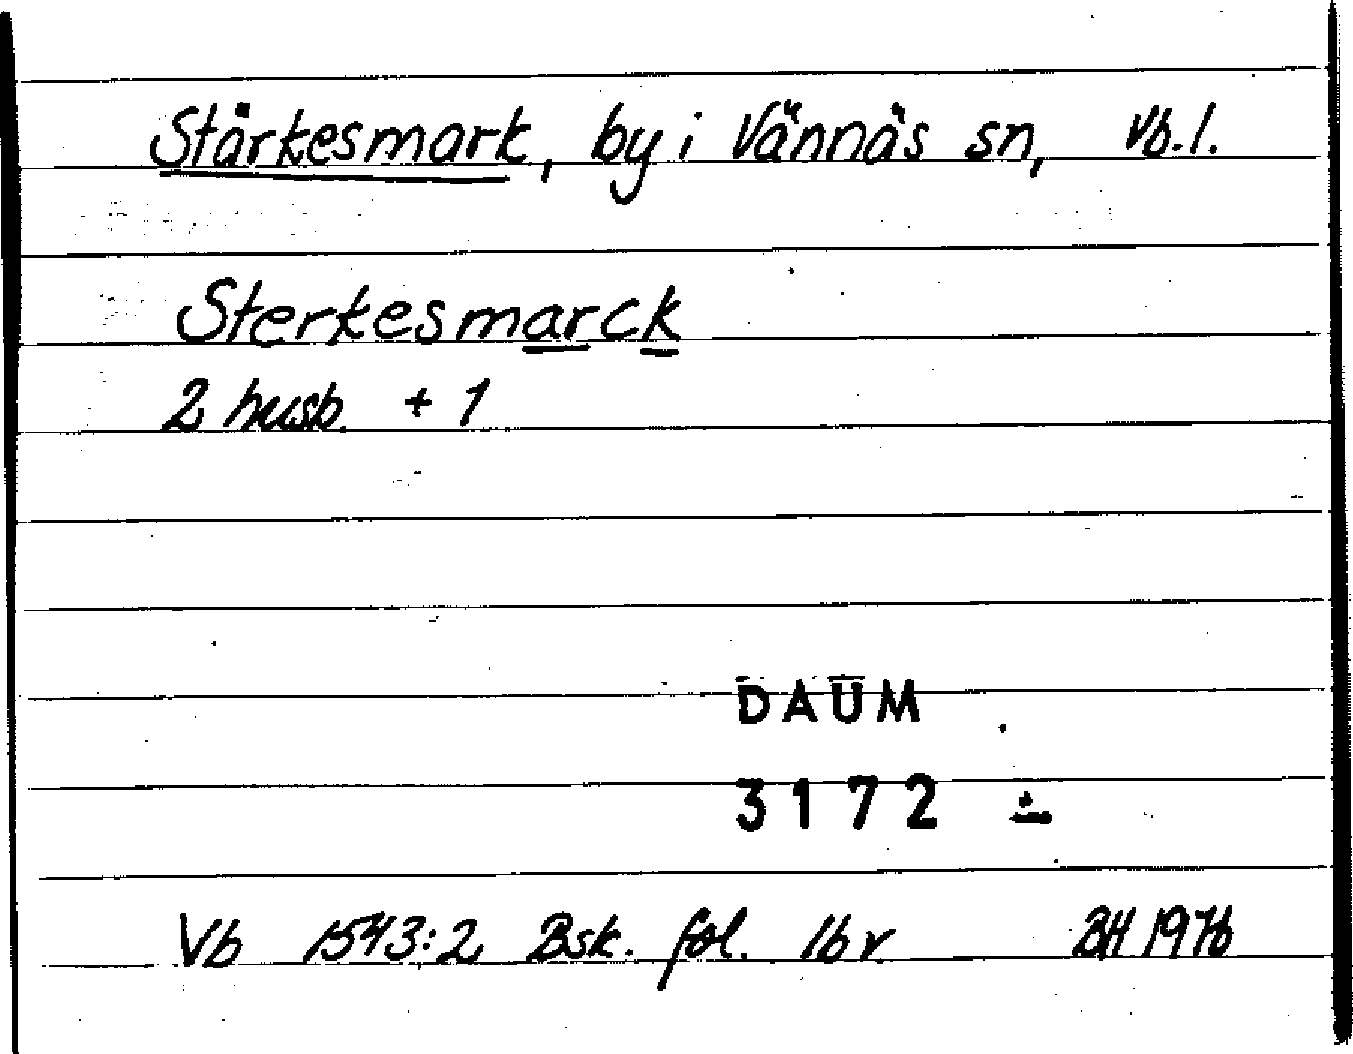 Stärkesmark, by i Vännäs sn, Vb.l.
Sterkesmarck
2 husb. + 1
DAUM
3172
Vb 1543:2 Bsk. fol. 16 r BH 1976